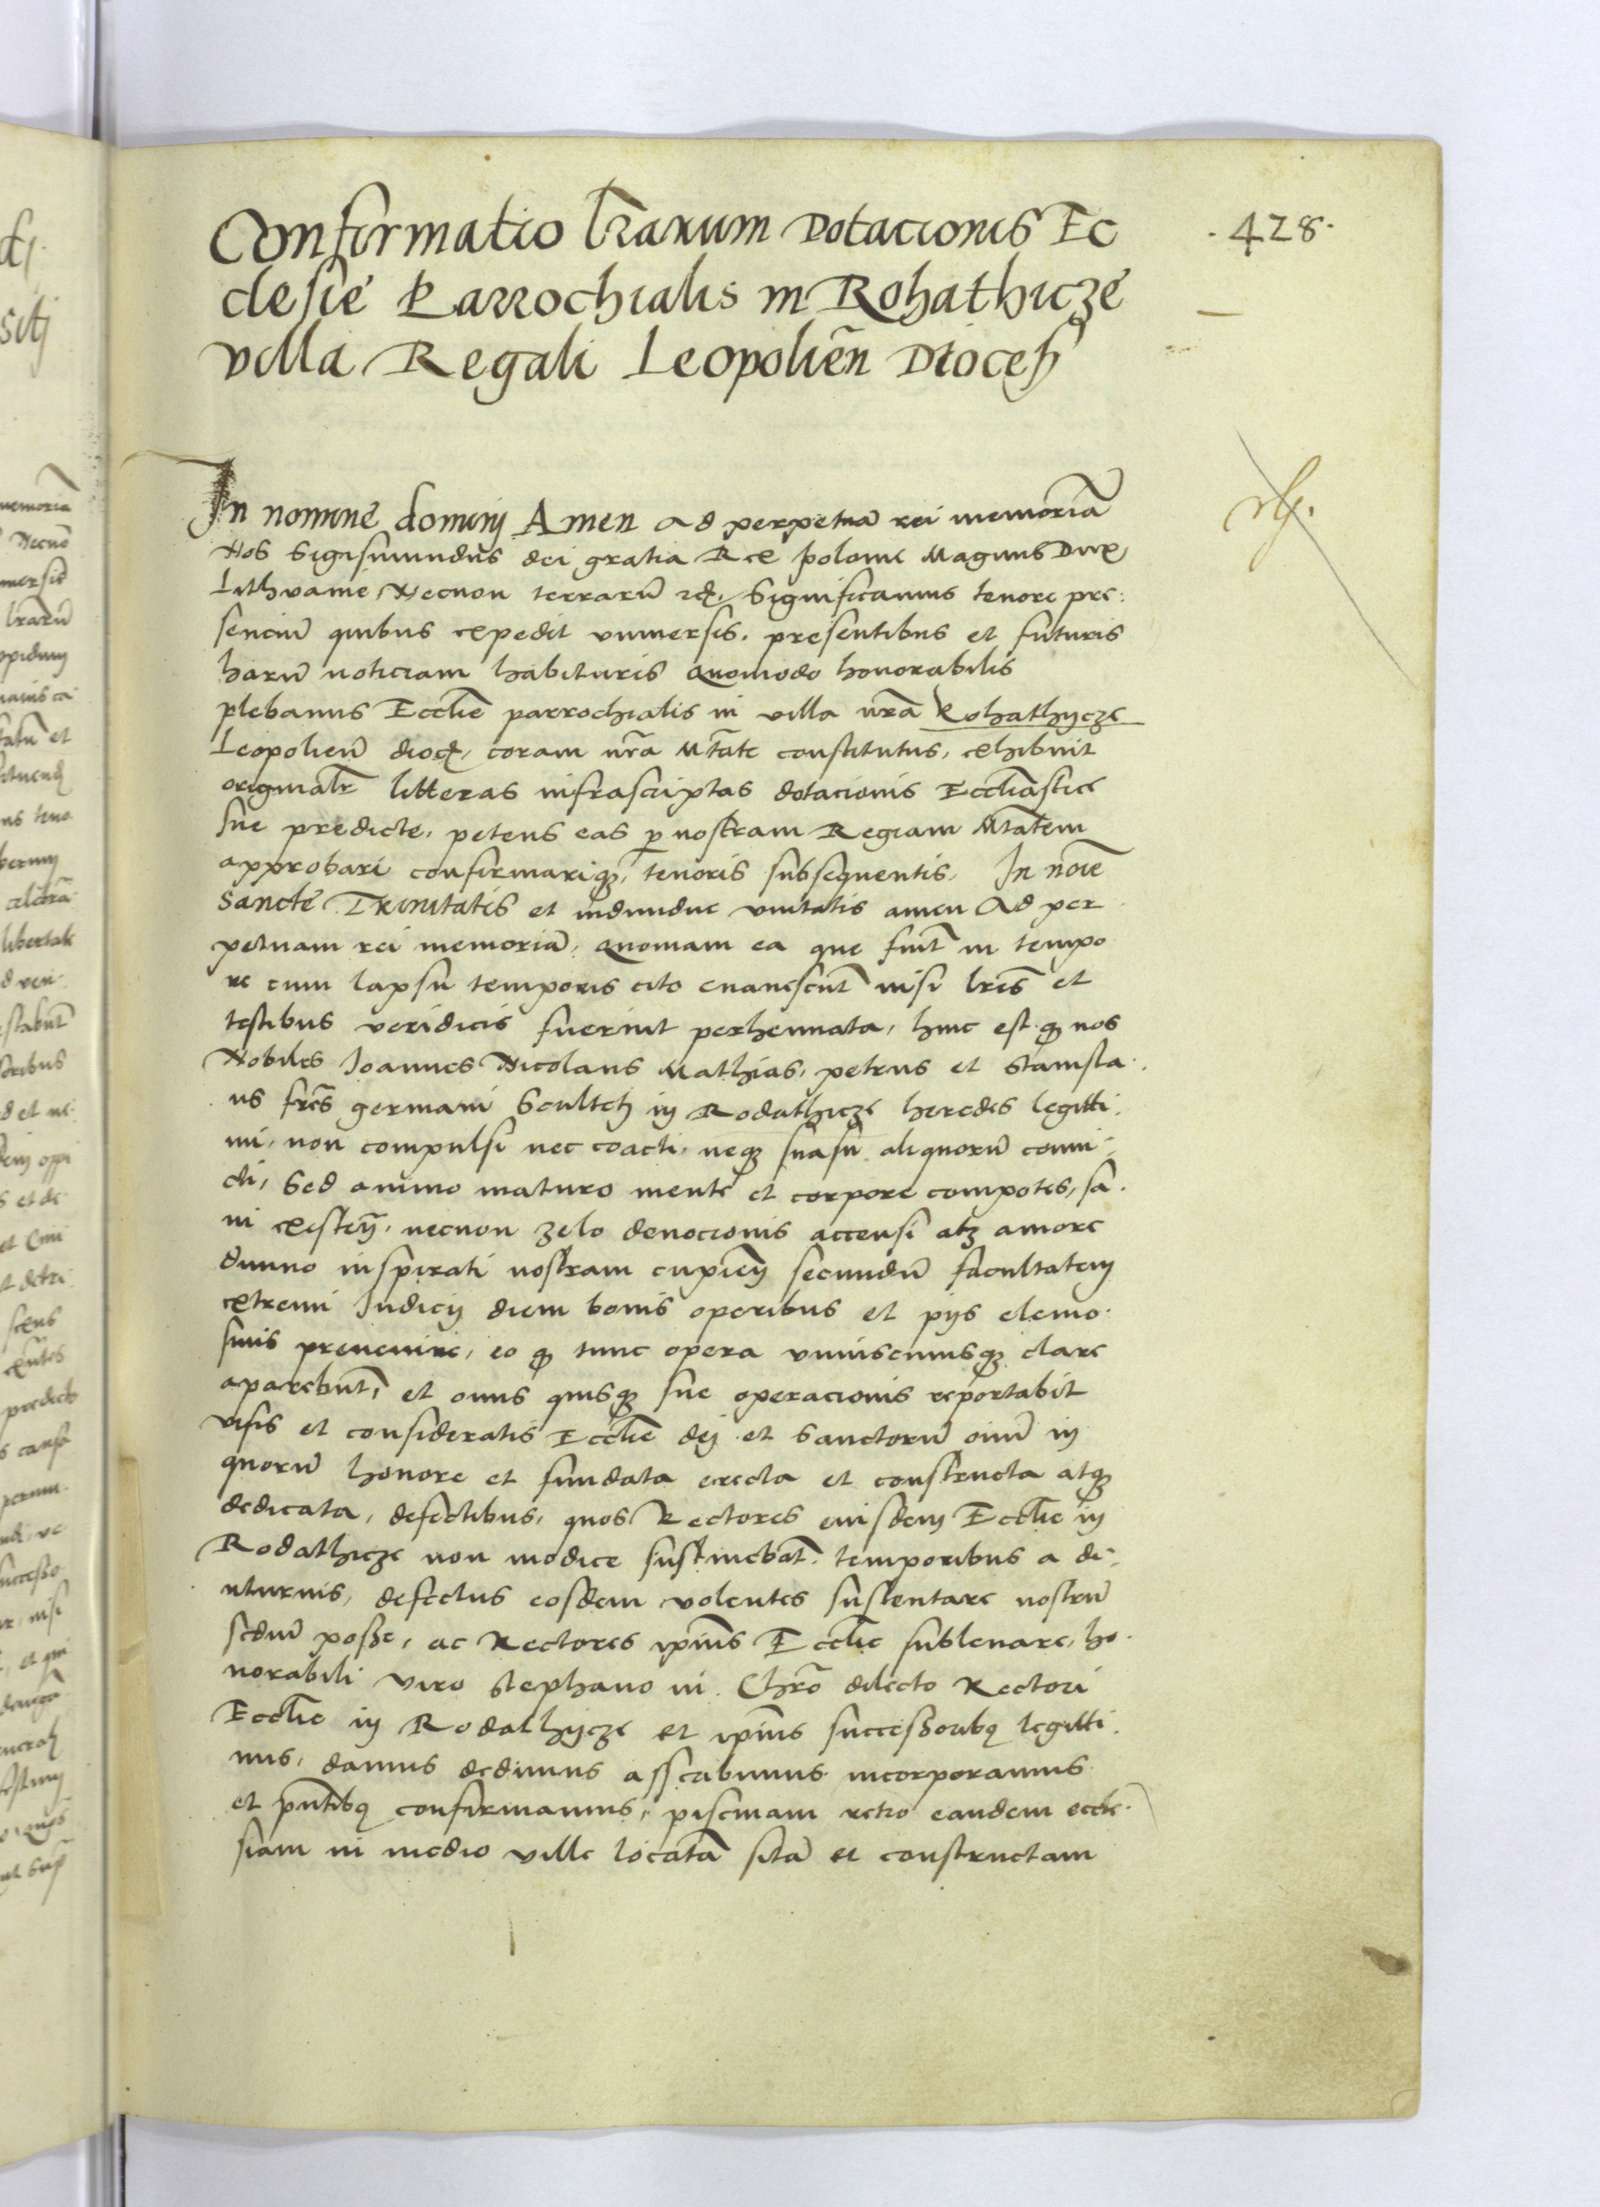 Confirmatio lrarum Dotacionis Ec
clesie Parrochialis in Rohathicze
villa Regali Leopolien Dioces
.428.
In nomine dominj Amen Ad perpetuã rei memoriã
Nos Sigismundus dei gratia Rex Polonie Magnus Dux
Lithvanie, Necnon terrarũ etc. Significamus tenore pre:
senciũ quibus expedit vniuersis, presentibus et futuris
harũ noticiam habituris Quomodo honorabilis
plebanus Ecclie parrochialis in villa nrã Rohathycze
Leopolien dioc, coram nrã Mtate constitutus, exhibuit
originalr litteras infrascriptas dotacionis Eccliastice
sue predicte, petens eas p nostram Regiam Mtatem
approbari confirmariq, tenoris subsequentis, In noie
Sancte Trinitatis et indiuidue vnitatis amen Ad per
petuam rei memoriã, Quoniam ea que fiũt in tempo
re cum lapsu temporis cito euanescũt nisi lris et
testibus veridicis fuerint perhennata, hinc est q nos
Nobiles Joannes Nicolaus Mathias, petrus et Stanisla.
us fres germani Sculteti in Rodathicze heredes legitti.
mi, non compulsi nec coacti, neq suasu aliquorũ conui.
cti, Sed animo maturo mente et corpore compotes, sa.
ni existen, necnon zelo deuocionis accensi atq amore
diuino inspirati nostram cupien secundũ facultatem
extremi Judicij diem bonis operibus et pijs elemo.
sinis preuenire, eo q tunc opera vniuscuiusq clare
aparebũt, et onus quisq sue operacionis reportabit
visis et consideratis Ecclie dei et Sanctorũ oiũ in
quorũ honore et fundata erecta et constructa atq
dedicata, defectibus, quos Rectores eiusdem Ecclie in
Rodathicze non modice sustinebãt, temporibus a di.
uturnis, defectus eosdem volentes sustentare nostrũ
sedũ posse, ac Rectores ipius Ecclie subleuare, ho.
norabili viro Stephano in Chrõ dilecto Rectori
Ecclie in Rodathycze et ipius successoribq legitti.
mis, damus dedimus asscribimus incorporamus
et pntibq confirmamus, piscinam retro eandem eccle.
siam in medio ville locatã sitã et constructam